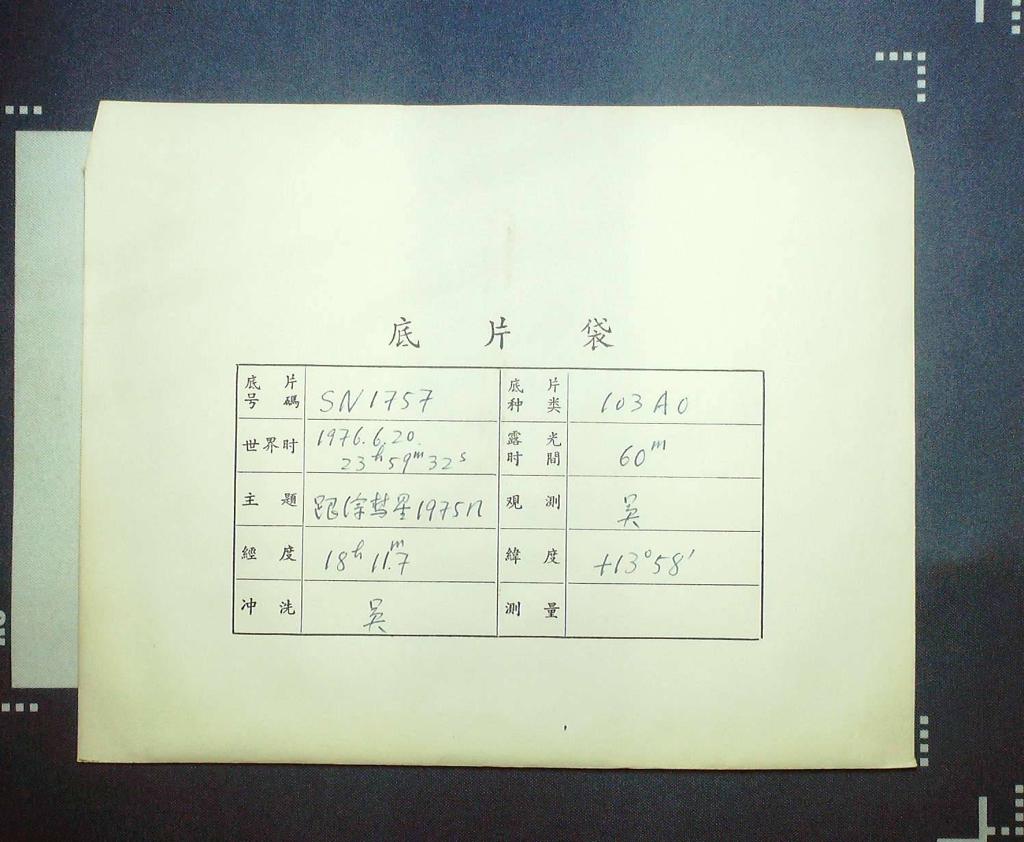 底片袋
底片号碼 SN1757 底片种类 103AO
世界时 1976.6.20. 23h59m32s 露光时間 60m
主題 跟徐彗星1975n 观測 吴
經度 18h11m.7 緯度 +13°58′
冲洗 吴 測量